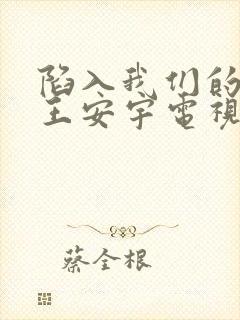 陷入我们的
王安宇電視
蔡全根